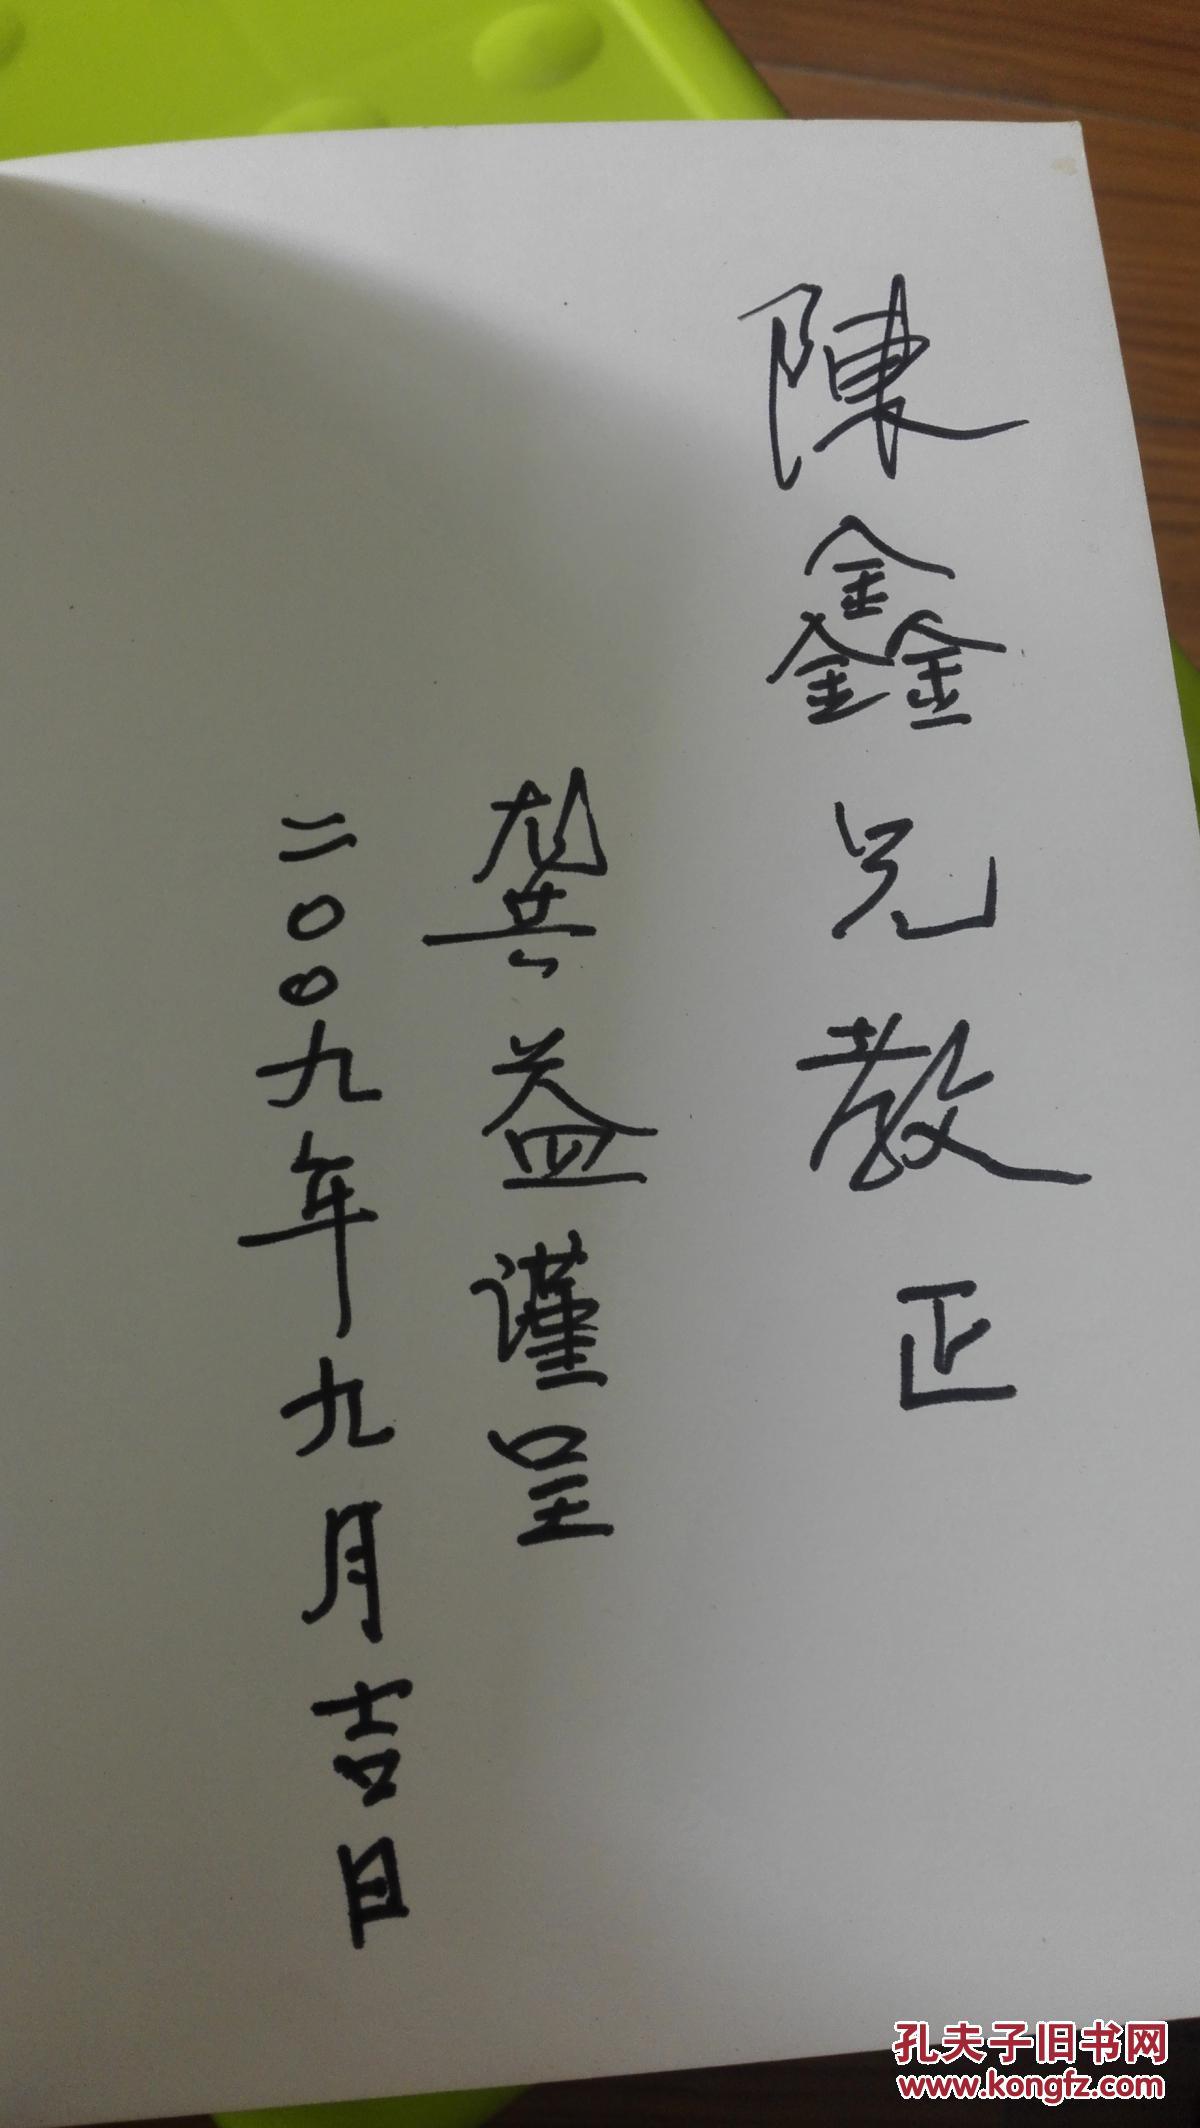 陳鑫兄教正
龚益谨呈
二〇〇九年九月吉日
孔夫子旧书网
www.kongfz.com